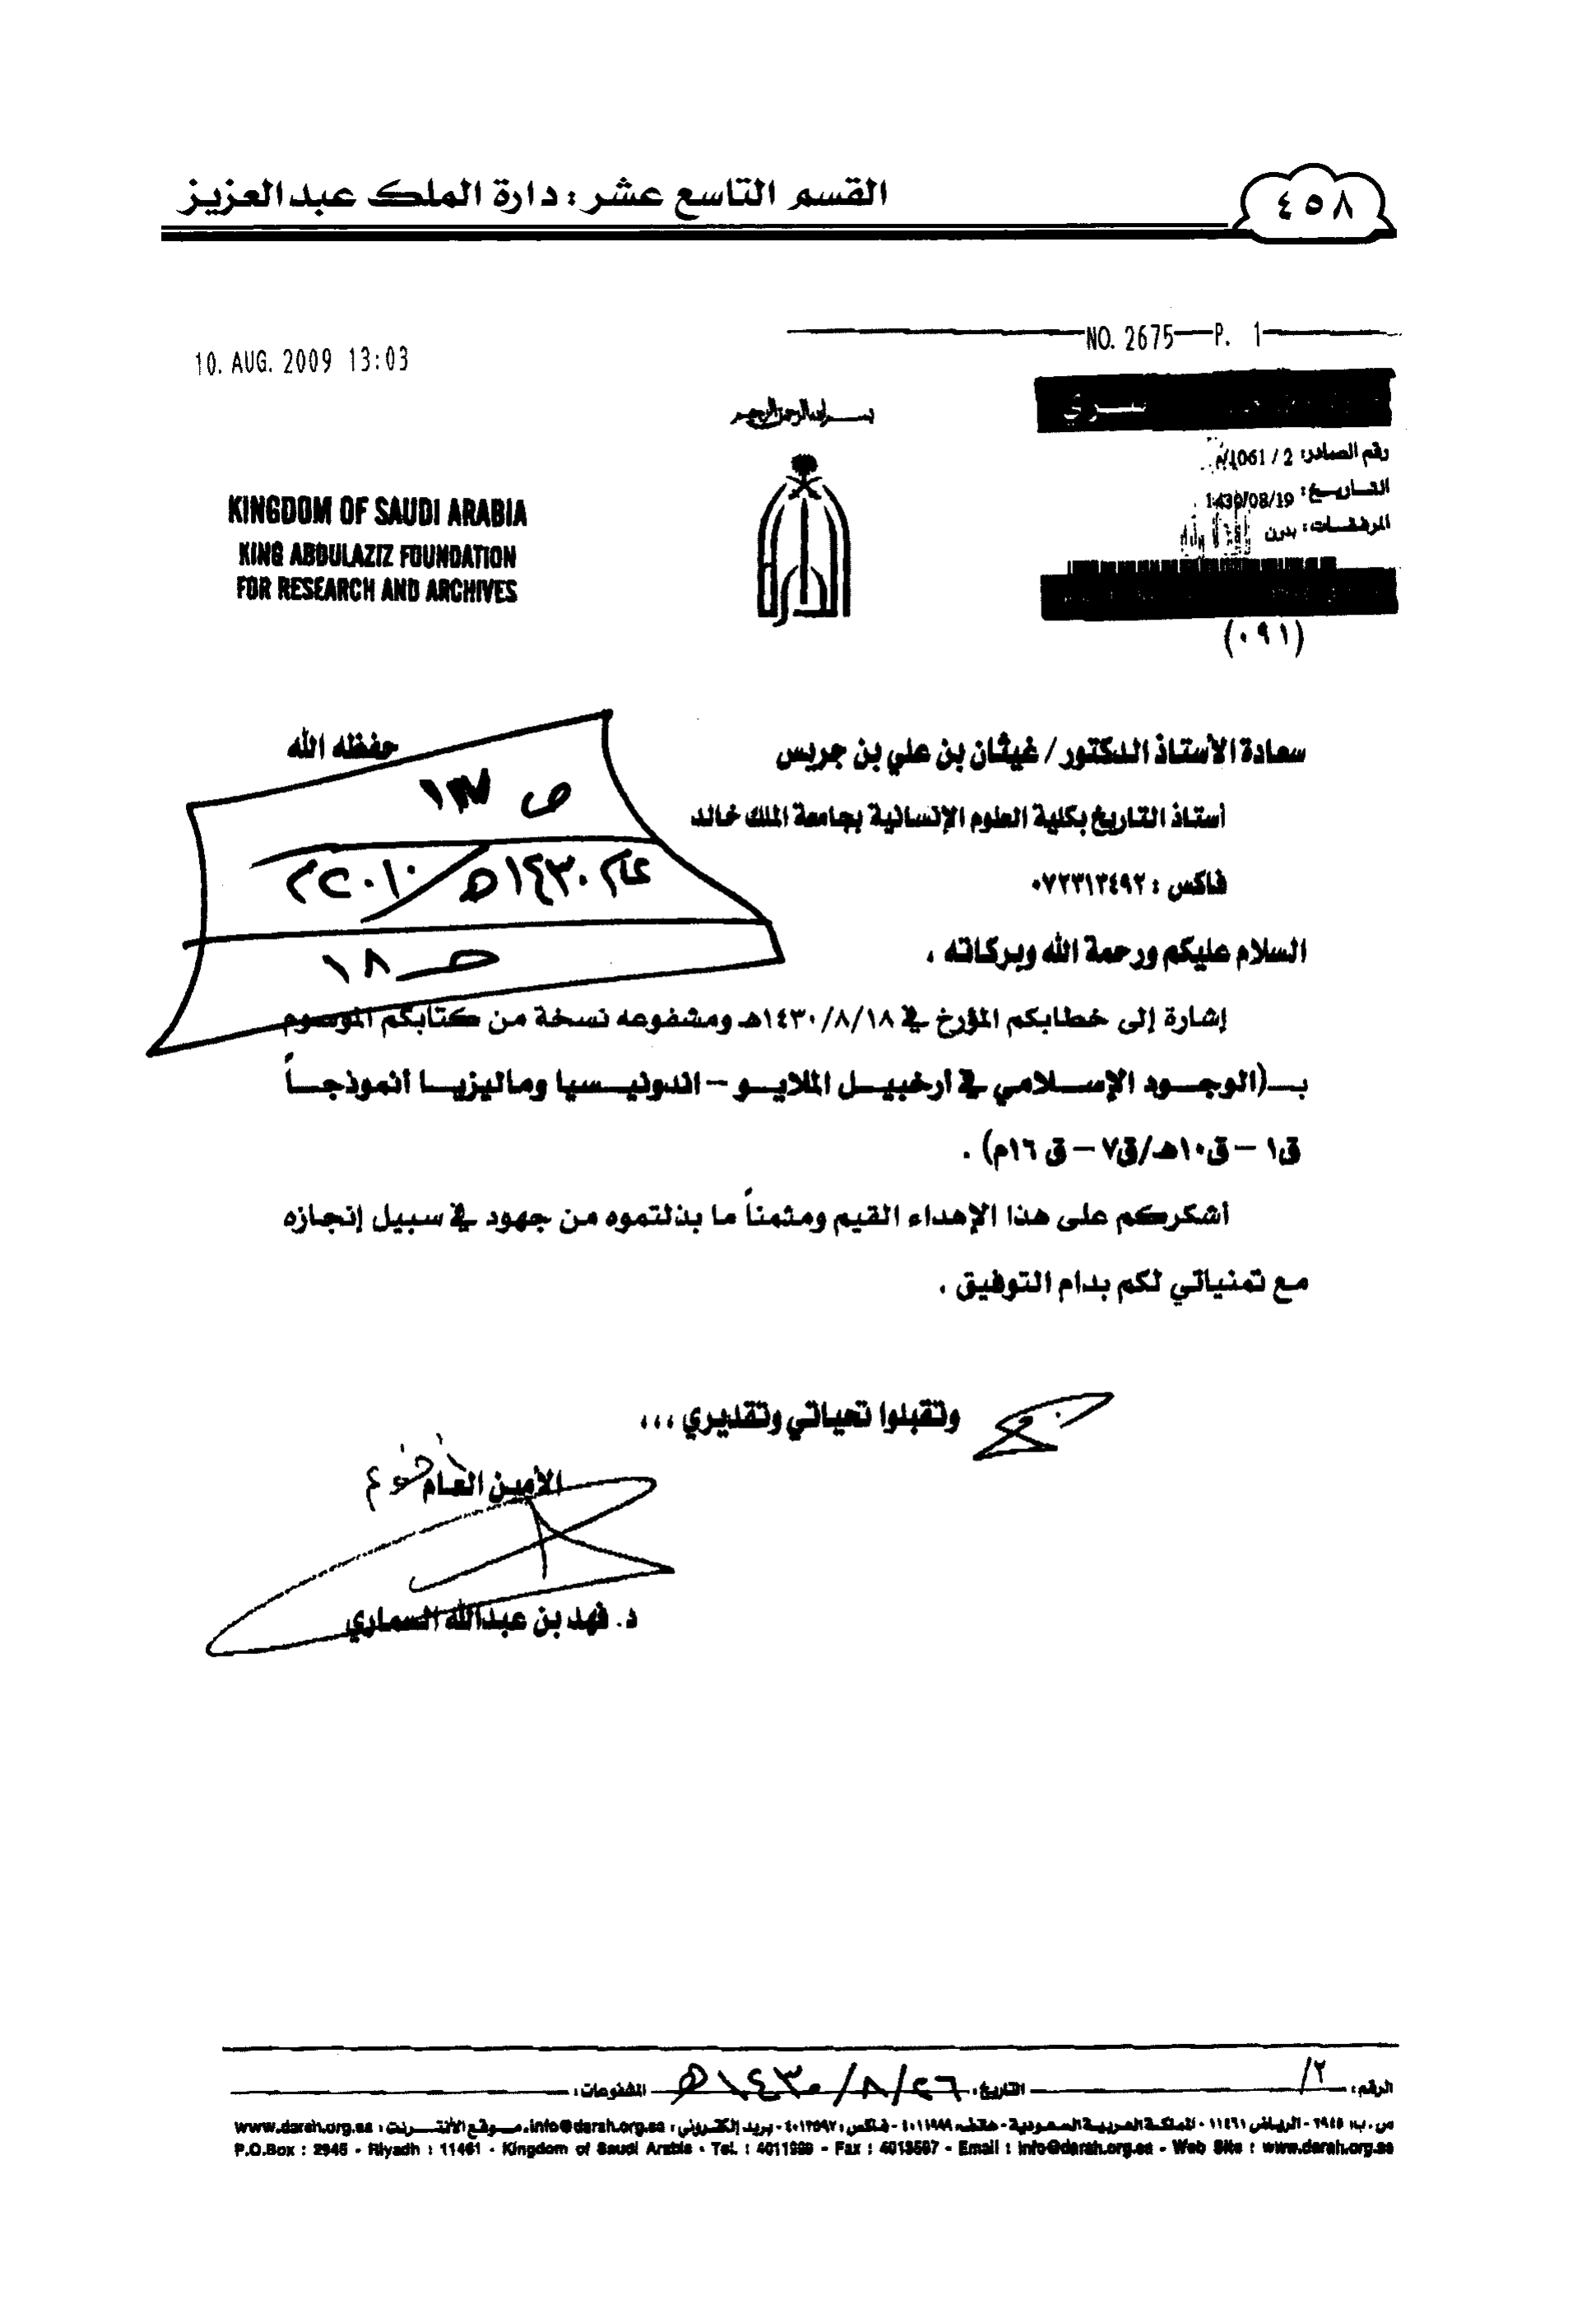 ٤٥٨
القسم التاسع عشر : دارة الملك عبدالعزيز
10. AUG. 2009 13:03
NO. 2675 P. 1
بسم الله الرحمن الرحيم
KINGDOM OF SAUDI ARABIA
KING ABDULAZIZ FOUNDATION
FOR RESEARCH AND ARCHIVES
رقم الصادر: 2 / 1061/
التاريخ: 1430/08/19
المرفقات: بدون
(٠٩١)
سعادة الأستاذ الدكتور / غيثان بن علي بن جريس
حفظه الله
أستاذ التاريخ بكلية العلوم الإنسانية بجامعة الملك خالد
فاكس : ٠٧٢٣١٣٤٩٢
عام ١٤٣٠هـ / ٢٠١٠م
صـ ١٨
السلام عليكم ورحمة الله وبركاته ،
إشارة إلى خطابكم المؤرخ في ١٤٣٠/٨/١٨هـ ومشفوعه نسخة من كتابكم الموسوم
بـ (الوجود الإسلامي في أرخبيل الملايو – اندونيسيا وماليزيا أنموذجاً
ق١ – ق١٠هـ/ق٧ – ق ١٦م) .
أشكركم على هذا الإهداء القيم ومثمناً ما بذلتموه من جهود في سبيل إنجازه
مع تمنياتي لكم بدام التوفيق .
وتقبلوا تحياتي وتقديري ،،،
الأمين العام
د. فهد بن عبدالله السماري
الرقم: ٢/
التاريخ: ٢٦/٨/١٤٣٠هـ
المشفوعات:
ص.ب: ٢٩٤٥ - الرياض ١١٤٦١ - المملكة العربية السعودية - هاتف: ٤٠١١٩٩٩ - فاكس: ٤٠١٣٥٩٧ - بريد إلكتروني: info@darah.org.sa، موقع الأنترنت: www.darah.org.sa
P.O.Box : 2945 - Riyadh : 11461 - Kingdom of Saudi Arabia - Tel. : 4011999 - Fax : 4013597 - Email : info@darah.org.sa - Web Site : www.darah.org.sa